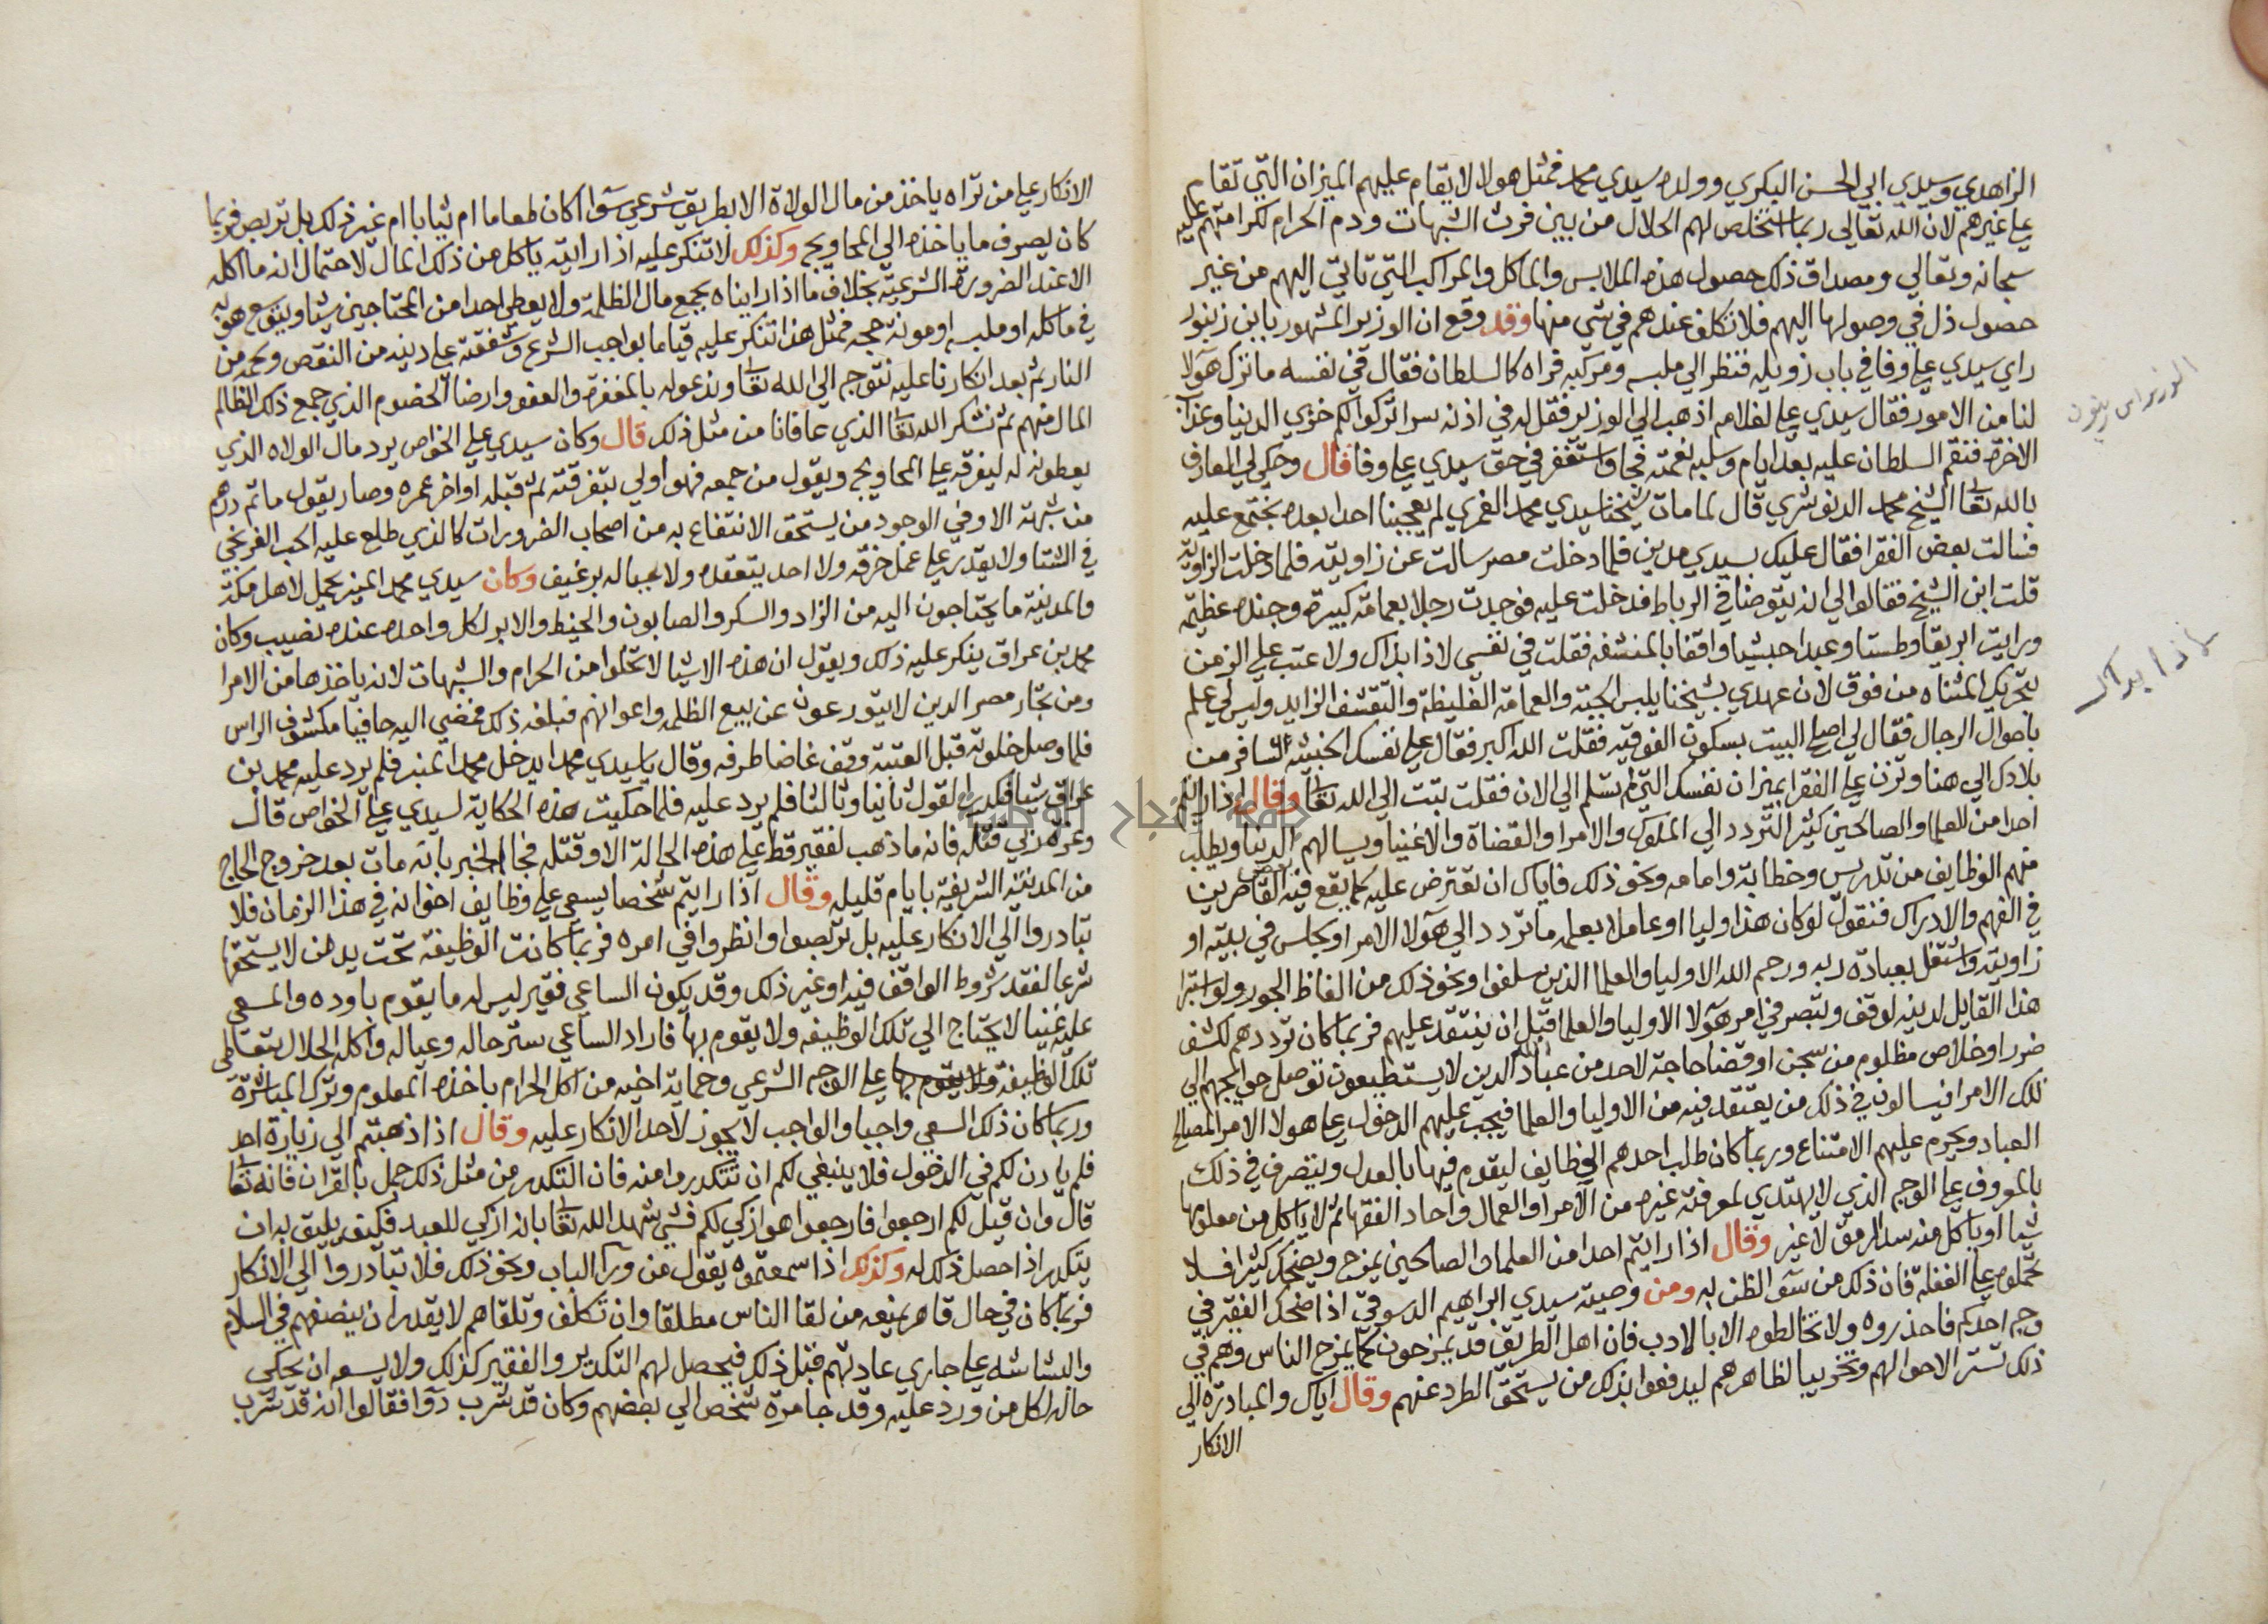 الزاهدي وسيدي ابي الحسن البكري وولده سيدي محمد فمثل هولا لا يقام عليهم الميزان التي تقام
علي غيرهم لان الله تعالي ربما استخلص لهم الحلال من بين فرث الشبهات ودم الحرام لكرامتهم عليه
سبحانه وتعالي ومصداق ذلك حصول هذه الملابس والماكل والمراكب التي تاتي اليهم من غير
حصول ذل في وصولها اليهم فلا تكلف عندهم في شي منها وقد وقع ان الوزير المشهور بابن زنبور
راي سيدي علي وفا في باب زويله فنظر الي ملبسه ومركبه فراه كالسلطان فقال في نفسه ما ترك هولا
لنا من الامور فقال سيدي علي لغلامه اذهب الي الوزير فقل له في اذنه سرا تركوا لكم خزي الدنيا وعذاب
الاخرة فنقم السلطان عليه بعد ايام وسلبه نعمته فجا واستغفر في حق سيدي علي وفا قال وحكي لي العارف
بالله تعا الشيخ محمد الدنوشري قال لما مات شيخنا سيدي محمد الغمري لم يعجبنا احد بعده نجتمع عليه
فسالت بعض الفقرا فقال عليك بسيدي مدين فلما دخلت مصر سالت عن زاويته فلما دخلت الزاوية
قلت ابن الشيخ فقالوا لي انه يتوضا في الرباط فدخلت عليه فوجدت رجلا بعمامة كبيرة وجنده عظيمه
ورايت ابريقا وطستا وعبدا حبشيا واقفا بالمنشفه فقلت في نفسي لا ذا بذاك ولا عتب علي الزمن
بتحريك المثناه من فوق لان عهدي بشيخنا يلبس الجبه والعمامة الغليظة والتقشف الزايد وليس لي علم
باحوال الرجال فقال لي اصلح البيت بسكون الفوقيه فقلت الله اكبر فقال علي نفسك الخبيثه تسافر من
بلادك الي هنا وتزن علي الفقرا بميزان نفسك التي لم تسلم الي الان فقلت تبت الي الله تعا وقال اذا رايتم
احدا من العلما والصالحين كثير التردد الي الملوك والامرا والقضاة والاغنيا ويسالهم الدنيا ويطلب
منهم الوظايف من تدريس وخطابة وامامه ونحو ذلك فاياك ان تعترض عليه كما يقع فيه بعض القاصرين
في الفهم والادراك فنقول لو كان هذا وليا او عاملا بعلمه ما تردد الي هولا الامرا وجلس في بيته او
زاويته واشتغل بعبادة ربه ورحم الله الاوليا والعلما الذين سلفوا ونحو ذلك من الفاظ الجور ولو استبرا
هذا القايل لدينه لوقف وتبصر في امر هولا الاوليا والعلما قبل ان ينتقد عليهم فربما كان ترددهم لكشف
ضرر او خلاص مظلوم من سجن او قضا حاجة لاحد من عباد الله الذين لا يستطيعون توصل حوايجهم الي
تلك الامرا فيسالون في ذلك من يعتقد فيه من الاوليا والعلما فيجب عليهم الدخول علي هولا الامرا لمصالح
العباد ويحرم عليهم الامتناع وربما كان طلب احدهم الوظايف ليقوم فيها بالعدل ويتصرف في ذلك
بالمعروف علي الوجه الذي لا يهتدي لمعرفته غيره من الامرا والعمال واحاد الفقها ثم لا ياكل من معلومها
شيا او ياكل منه سد الرمق لا غير وقال اذا رايتم احدا من العلما والصالحين يمزح ويضحك كثيرا فلا
تحملوه علي الغفلة فان ذلك من سو الظن به ومن وصية سيدي ابراهيم الدسوقي اذا ضحك الفقير في
وجه احدكم فاحذروه ولا تخالطوه الا بالادب فان اهل الطريق قد يمزحون كما يمزح الناس وهم في
ذلك تستر الاحوالهم وتخريبا لظاهرهم ليدفعوا بذلك من يستحق الطرد عنهم وقال اياك والمبادرة الي
الانكار
لا ذا بذاك
الانكار علي من تراه ياخذ من مال الولاة الا بطريق شرعي سوا كان طعاما ام ثيابا ام غير ذلك بل تربص فربما
كان يصرف ما ياخذه الي المحاويج وكذلك لا تنكر عليه اذا رايته ياكل من ذلك المال لاحتمال انه ما اكله
الا عند الضرورة الشرعيه بخلاف ما اذا رايناه يجمع مال الظلمة ولا يعطي احدا من المحتاجين شيا ويتوسع هو به
في ماكله او ملبسه او مونة حجه فمثل هذا تنكر عليه قياما بواجب الشرع وشفقة علي دينه من النقص ولحمه من
النار ثم بعد انكارنا عليه نتوجه الي الله تعا وندعو له بالمغفرة والعفو وارضا الخصوم الذي جمع ذلك الظالم
المال منهم ثم نشكر الله تعا الذي عافانا من مثل ذلك قال وكان سيدي علي الخواص يرد مال الولاه الذي
يعطونه له ليفرقه علي المحاويج ويقول من جمعه فهو اولي بتفرقته ثم قبله اواخر عمره وصار يقول ما ثم درهم
من شبهة الا وفي الوجود من يستحق الانتفاع به من اصحاب الضرورات كالذي طلع عليه الحب الفرنجي
في الشتا ولا يقدر علي عمل حرفة ولا احد يتفقده ولا يعباله برغيف وكان سيدي محمد المنير يحمل لاهل مكة
والمدينة ما يحتاجون اليه من الزاد والسكر والصابون والخيط والابر لكل واحد عنده نصيب وكان
محمد بن عراق ينكر عليه ذلك ويقول ان هذه الاشيا لا تخلوا من الحرام والشبهات لانه ياخذها من الامرا
ومن تجار مصر الذين لا يتورعون عن بيع الظلمه واعوانهم فبلغه ذلك فمضي اليه حافيا مكشوف الراس
فلما وصل خلوته قبل العتبة ووقف غاضا طرفه وقال يا سيدي محمد ايدخل محمد المنير فلم يرد عليه محمد بن
عراق شيا فكرر القول ثانيا وثالثا فلم يرد عليه فلما حكيت هذه الحكاية لسيدي علي الخواص قال
وعزة ربي قتله فانه ما ذهب لفقير قط علي هذه الحالة الا وقتله فجا الخبر بانه مات بعد خروج الحاج
من المدينه الشريفة بايام قليله وقال اذا رايتم شخصا يسعي علي وظايف اخوانه في هذا الزمان فلا
تبادروا الي الانكار عليه بل تربصوا وانظروا في امره فربما كانت الوظيفة تحت يد من لا يستحقها
شرعا لفقد شروط الواقف فيه او غير ذلك وقد يكون الساعي فقير ليس له ما يقوم باوده والمسعي
عليه غنيا لا يحتاج الي تلك الوظيفه ولا يقوم بها فاراد الساعي ستر حاله وعياله واكله الحلال بتعاطي
تلك الوظيفة ولا يقوم بها علي الوجه الشرعي وحماية اخيه من اكل الحرام باخذه المعلوم وترك المباشرة
وربما كان ذلك السعي واجبا والواجب لا يجوز لاحد الانكار عليه وقال اذا ذهبتم الي زيارة احد
فلم ياذن لكم في الدخول فلا ينبغي لكم ان تتكدروا منه فان التكدر من مثل ذلك جهل بالقران فانه تعا
قال وان قيل لكم ارجعوا فارجعوا هو ازكي لكم فشي شهد الله تعا بانه ازكي للعبد فكيف يليق به ان
يتكدر اذا حصل ذلك له وكذلك اذا سمعتموه يقول من ورا الباب ونحو ذلك فلا تبادروا الي الانكار
فربما كان في حال قاهر يمنعه من لقا الناس مطلقا وان تكلف وتلقاهم لا يقدر ان ينصفهم في السلام
والبشاشه علي جاري عادتهم قبل ذلك فيحصل لهم التكدير والفقير كذلك ولا يسعه ان يحكي
حاله لكل من ورد عليه وقد جا مرة شخص الي بعضهم وكان قد شرب دوا فقالوا انه قد شرب